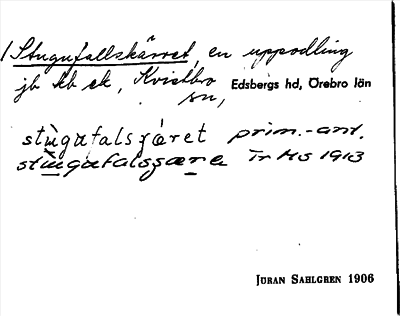 /Stugufallskärret, en uppodling
jb kb sk, Kvistbro Edsbergs hd, Örebro län
sn,
stùgɑfalsçǽret prim.-ant.
stùgɑfalsçæra Ir HS 1913
JÖRAN SAHLGREN 1906